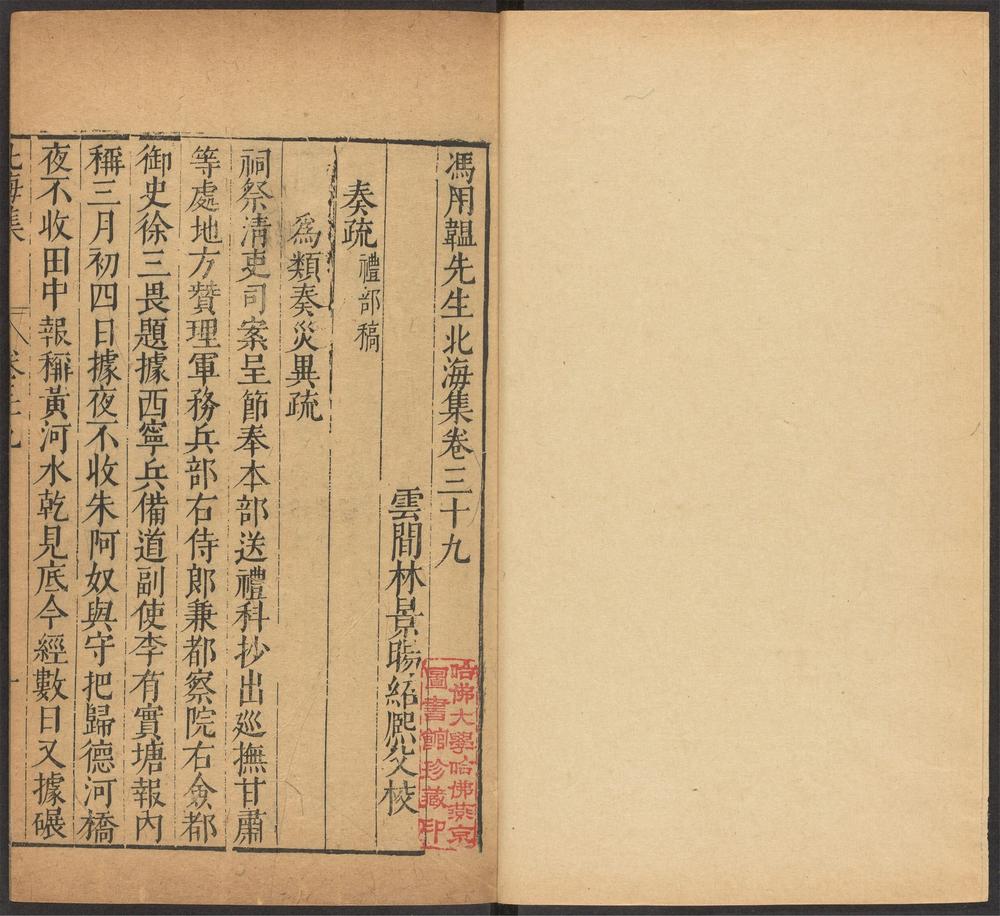 馮用韞先生北海集卷三十九
雲間林景暘紹熈父校
奏疏禮部稿
為類奏災異疏
祠祭清吏司案呈節奉本部送禮科抄出廵撫甘肅
等處地方贊理軍務兵部右侍郎兼都察院右僉都
御史徐三畏題據西寧兵備道副使李有實塘報內
稱三月初四日據夜不收朱阿奴與守把歸德河橋
夜不收田中報稱黃河水乾見底今經數日又據碾
北海集
卷三十九
一
哈佛大學哈佛燕京
圖書館珍藏印